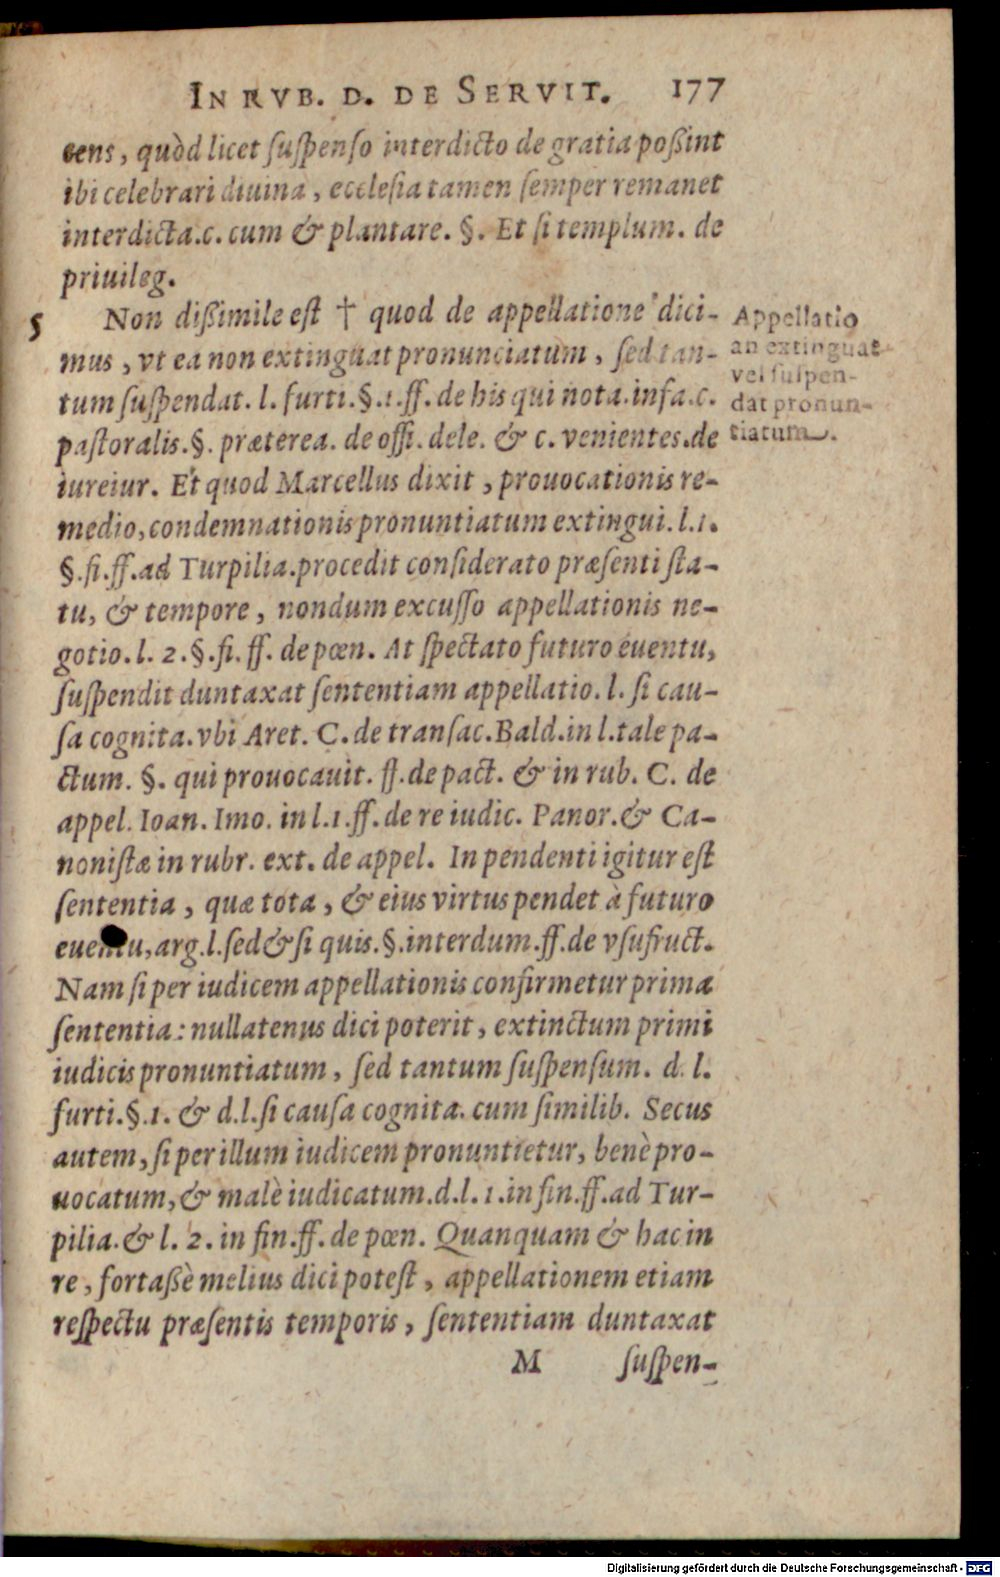 IN RVB. D. DE SERVIT. 177
cens, quòd licet ſuſpenſo interdicto de gratia poßint
ibi celebrari diuina, eccleſia tamen ſemper remanet
interdicta.c. cum & plantare. §. Et ſi templum. de
priuileg.
5 Non dißimile est † quod de appellatione dici-
mus, vt ea non extinguat pronunciatum, ſed tan-
tum ſuſpendat. l. furti.§.1.ff. de his qui nota.infa.c.
paſtoralis.§. præterea. de offi. dele. & c. venientes.de
iureiur. Et quod Marcellus dixit, prouocationis re-
medio, condemnationis pronuntiatum extingui. l.1.
§.fi.ff.ad Turpilia.procedit conſiderato præſenti ſta-
tu, & tempore, nondum excuſſo appellationis ne-
gotio. l. 2.§.fi. ff. de pœn. At ſpectato futuro euentu,
ſuſpendit duntaxat ſententiam appellatio. l. ſi cau-
ſa cognita. vbi Aret. C. de tranſac. Bald.in l.tale pa-
ctum. §. qui prouocauit. ff. de pact. & in rub. C. de
appel. Ioan. Imo. in l.1.ff. de re iudic. Panor.& Ca-
noniſtæ in rubr. ext. de appel. In pendenti igitur eſt
ſententia, quæ tota, & eius virtus pendet à futuro
euentu, arg.l.ſed & ſi quis.§.interdum.ff.de vſufruct.
Nam ſi per iudicem appellationis confirmetur prima
ſententia: nullatenus dici poterit, extinctum primi
iudicis pronuntiatum, ſed tantum ſuſpenſum. d. l.
furti.§.1. & d.l.ſi cauſa cognita. cum ſimilib. Secus
autem, ſi per illum iudicem pronuntietur, benè pro-
uocatum, & malè iudicatum.d.l. 1.in fin.ff.ad Tur-
pilia.& l. 2. in fin.ff. de pœn. Quanquam & hac in
re, fortaßè melius dici poteſt, appellationem etiam
reſpectu præſentis temporis, ſententiam duntaxat
M ſuſpen-
Appellatio
an extinguat
vel ſuſpen-
dat pronun-
tiatum.
Digitalisierung gefördert durch die Deutsche Forschungsgemeinschaft - DFG